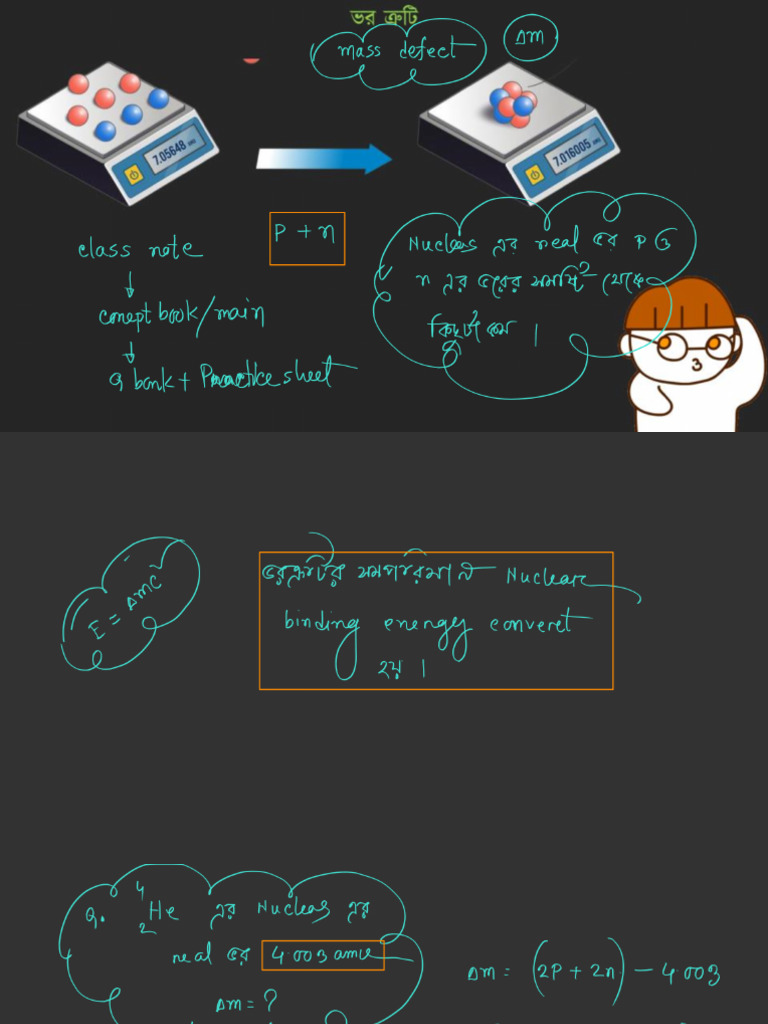 ভর ত্রুটি
mass defect
Δm
7.05648
7.016005
P + n
class note
↓
conept book/main
↓
q bank + Practice sheet
Nucleus এর real ভর P ও
n এর ভরের সমষ্টি থেকে
কিছুটা কম ।
E = Δmc²
ভরত্রুটির সমপরিমান Nuclear
binding energy converet
হয় ।
Q. ⁴₂He এর Nucleus এর
real ভর 4.003 amu
Δm = ?
Δm = (2P + 2n) − 4.003